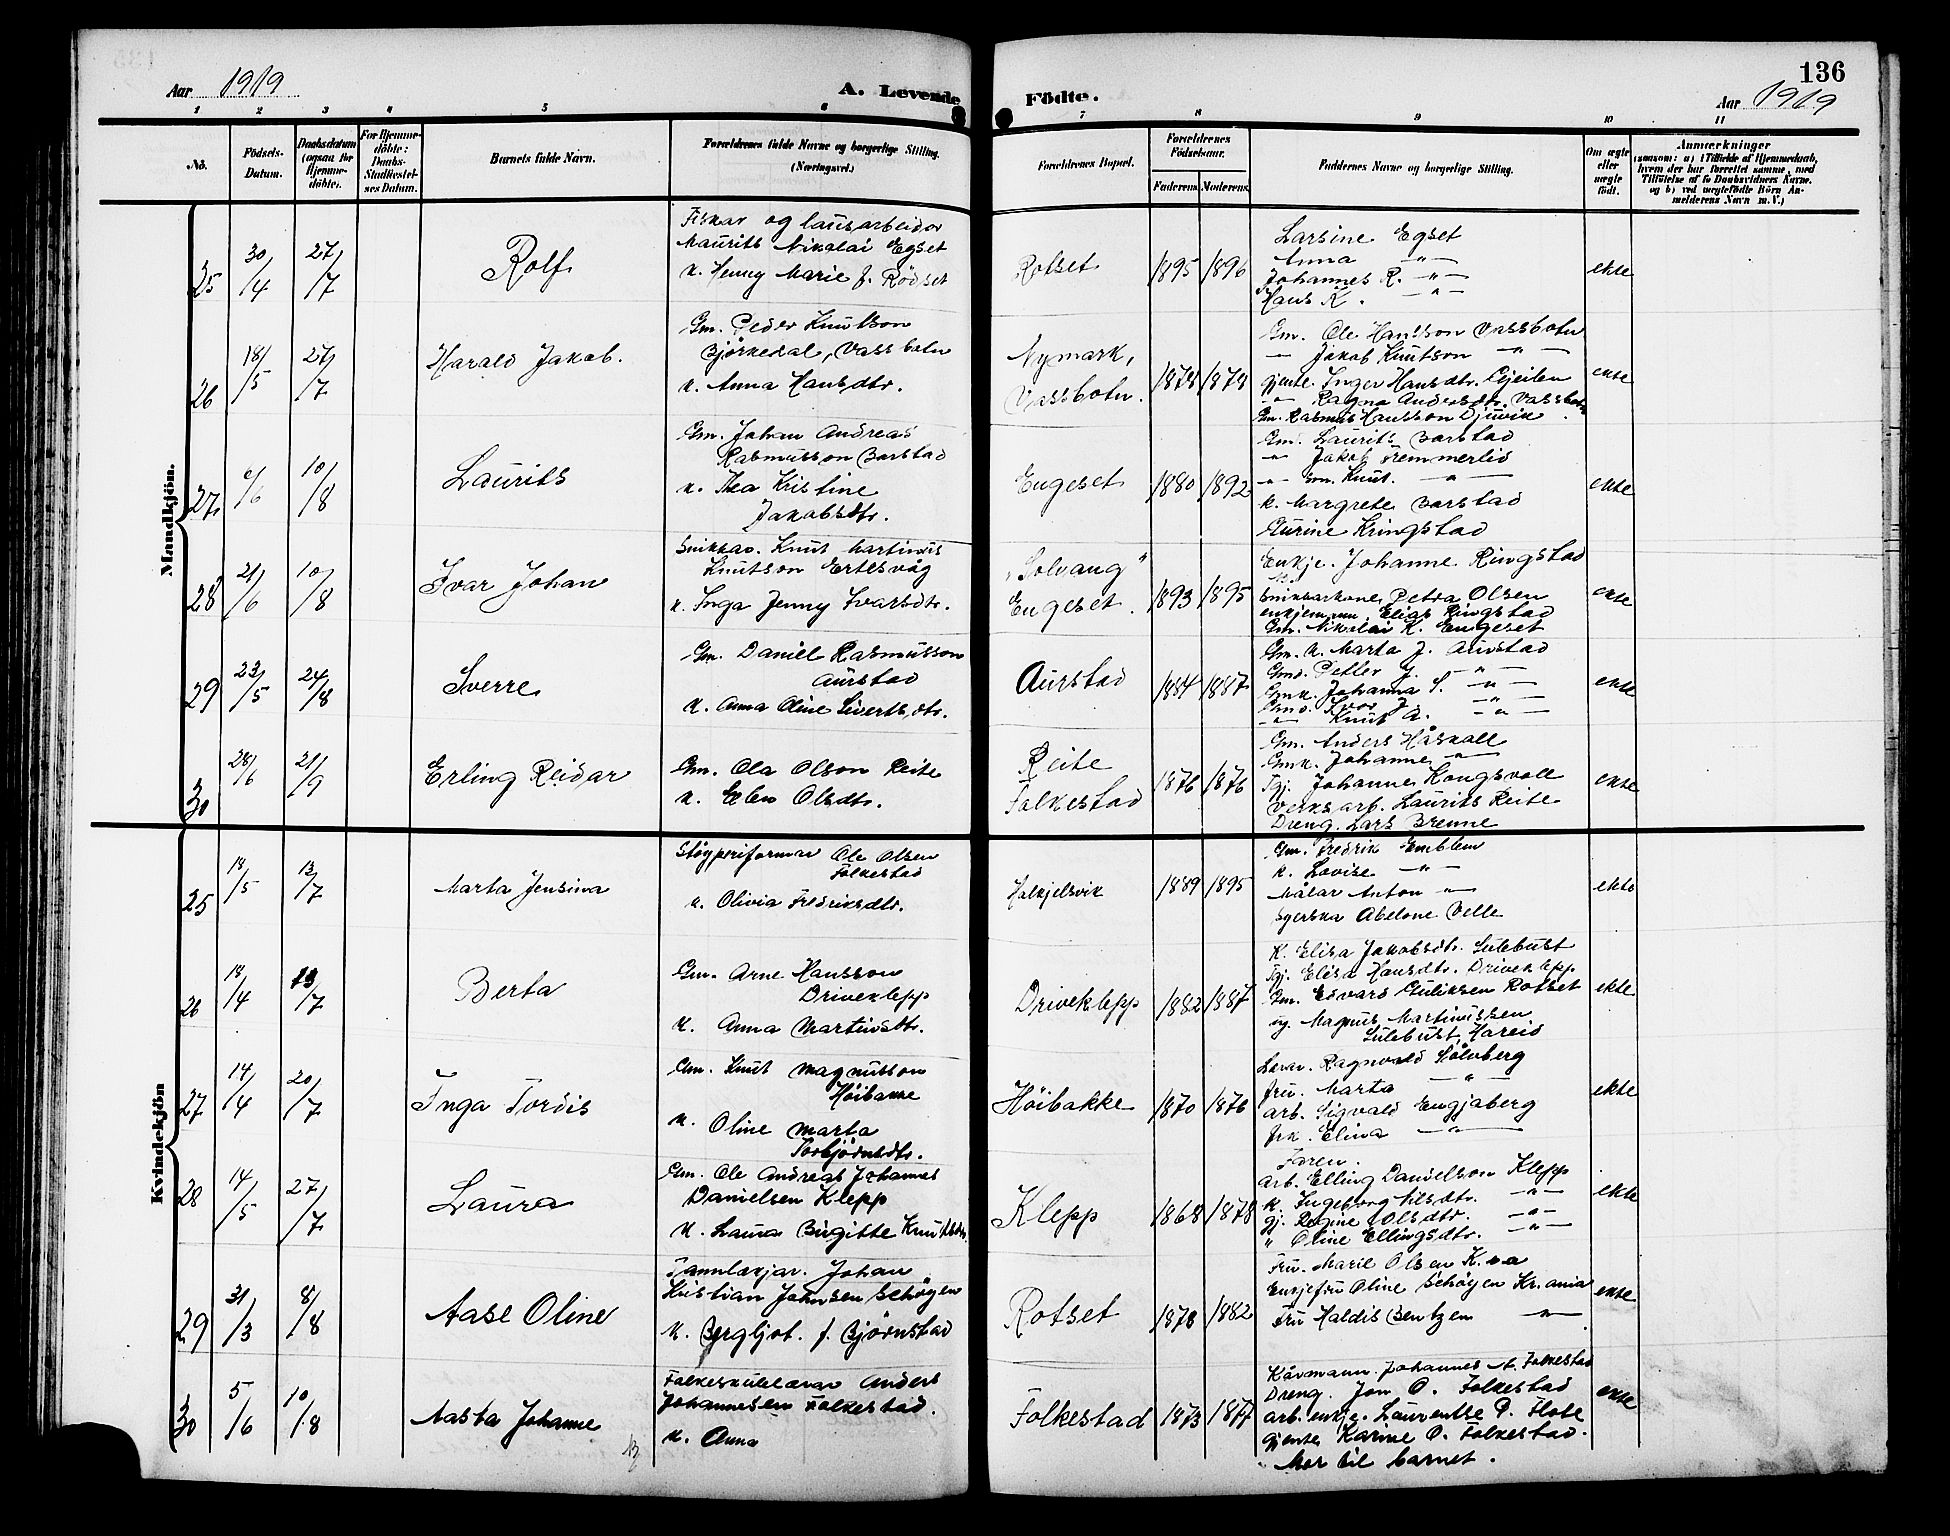 136
Aar 1919
A. Levende Födte.
Aar 1919
1 2 3 4 5 6 7 8 9 10 11
No.
Födsels-Datum.
Daabsdatum (ogsaa for Hjemmedöbte).
For Hjemmedöbte: Daabs-Stadfæstelses Datum.
Barnets fulde Navn.
Forældrenes fulde Navne og borgerlige Stilling. (Næringsvei.)
Forældrenes Bopæl.
Forældrenes Födselsaar.
Faderens. Moderens.
Faddernes Navne og borgerlige Stilling.
Om ægte eller uægte født.
Anmærkninger
(saasom: a) i Tilfælde af Hjemmedaab,
hvem der har forrettet samme, med
Tilföielse af to Daabsvidners Navne.
og b) ved uægtefödte Börn An-
melderens Navn m. V.)
Mandkjön.
25 30/4 27/7
Rolf
Fiskar og lausarbeidar
Maurits Nikolai Egset
k. Henny Marie f. Rödset
Rotset
1895 1896
Larsine Egset
Anna -"-
Johannes R. -"-
Hans K. -"-
ekte
26 18/5 27/7
Harald Jakob.
Gm. Peder Knutson
Bjørkedal, Vassbotn
k. Anna Hansdtr.
Nymark,
Vassbotn.
1878 1878
Gm. Ole Hansson Vassbotn
- Jakob Knutson -"-
gjente. Inger Hansdtr.
-"- Ragna Andersdtr. Vassbotn
Gm. Rasmus Hansson Djuvik
ekte
27 /6 10/8
Laurits
Gm. Johan Andreas
Rasmusson Barstad
k. Thea Kristine
Jakobsdtr.
Engeset
1880 1892
Gm. Laurits Barstad
-"- Jakob Tremmerlid
-"- Knut. -"-
k. Margrete Barstad
Gurine Kringstad
ekte
28 21/6 10/8
Ivar Johan
Snikkar. Knut Martinus
Knutson Ertesvåg
k. Inga Jenny Ivarsdtr.
"Solvang"
Engeset.
1893 1895
Enkje. Johanne Ringstad
Snikkarkone Petra Olsen
enkjemann Elias Ringstad
Gm. Nikolai K. Engeset
ekte
29 23/5 24/8
Sverre
Gm. Daniel Rasmusson
Aurstad
k. Anna Oline Sivertsdtr.
Aurstad
1884 1887
Gm. k. Marta J. Aurstad
Gmd. Petter J. -"-
Gmk. Johanna S. -"-
Gmd. Ivar J. -"-
-"- Knut A. -"-
ekte
30 28/6 21/9
Erling Reidar
Gm. Ola Olson Reite
k. Elen Olsdtr.
Reite
Folkestad
1876 1876
Gm. Anders Håskoll
Gmk. Johanne -"-
Tgj. Johanne Kongsvoll
Verksarb. Laurits Reite
Dreng. Lars Brenne
ekte
Kvindekjön
25 18/5 13/7
Marta Jensina
Støyperiformar Ole Olsen
Folkestad
k. Olivia Fredriksdtr.
Halkjelsvik
1889 1895
Gm. Fredrik Emblem
k. Lovise -"-
Målar Anton -"-
Syerska Abelone Velle
ekte
26 18/4 13/7
Berta
Gm. Arne Hansson
Driveklepp
k. Anna Martinsdtr.
Driveklepp
1882 1887
K. Elisa Jakobsdtr. Sulebust
Tgj. Elisa Hansdtr. Driveklepp
Gm. Edvard Guliksen Rotset
ug. Magnus Martinussen
Sulebust, Hareid
ekte
27 14/4 20/7
Inga Tordis
Gm. Knut Magnusson
Höibakke
k. Oline Marta
Torbjörnsdtr.
Höibakke
1870 1876
Lærar. Ragnvald Sölvberg
fru. Marta -"-
arb. Sigvald Engjaberg
frk. Elina -"-
Faren.
ekte
28 14/5 27/7
Laura
Gm. Ole Andreas Johannes
Danielsen Klepp
k. Laura Birgitte Knutsdtr.
Klepp
1868 1878
arb. Elling Danielson Klepp
k. Ingeborg Nilsdtr. -"-
gj. Regine Olsdtr. -"-
" Oline Ellingsdtr. -"-
ekte
29 31/3 8/8
Aase Oline
Tannlækjar. Johan
Kristian Johnsen Schöyen
k. Bergljot. f. Bjørnstad
Rotset
1878 1882
Fru. Marie Olsen K.ra
Enkjefru Oline Schöyen Kr.ania
Fru Haldis Bentzen -"-
ekte
30 5/6 10/8
Aasta Johanne
Folkeskulelærar Anders
Johannesen Folkestad.
k. Anna
Folkestad
1873 1877
Kårmann. Johannes A. Folkestad
Dreng. Jon O. Folkestad
arb. enkje. Laurentse P. Flote
gjente Karine O. Folkestad.
Mor til barnet.
ekte